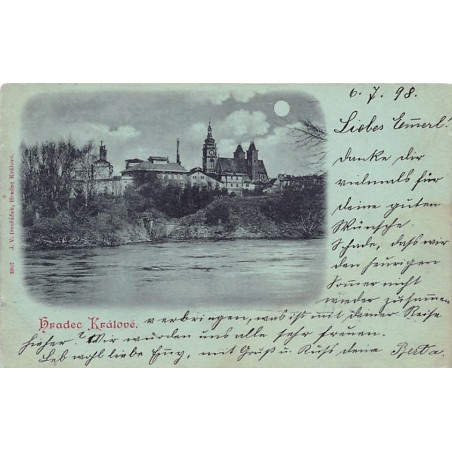 6. 7. 98.
Liebes Emerl!
danke dir
vielmals für
deine guten
Wünsche
Schade, dass wir
den heurigen
Sommer nicht
wieder zusammen
verbringen, was ist mit deiner Reise
hieher? Wir würden uns alle sehr freuen.
Leb wohl liebe Emy, mit Gruß u. Kuß deine Berta
Hradec Králové.
J. V. Dvořáček, Hradec Králové.